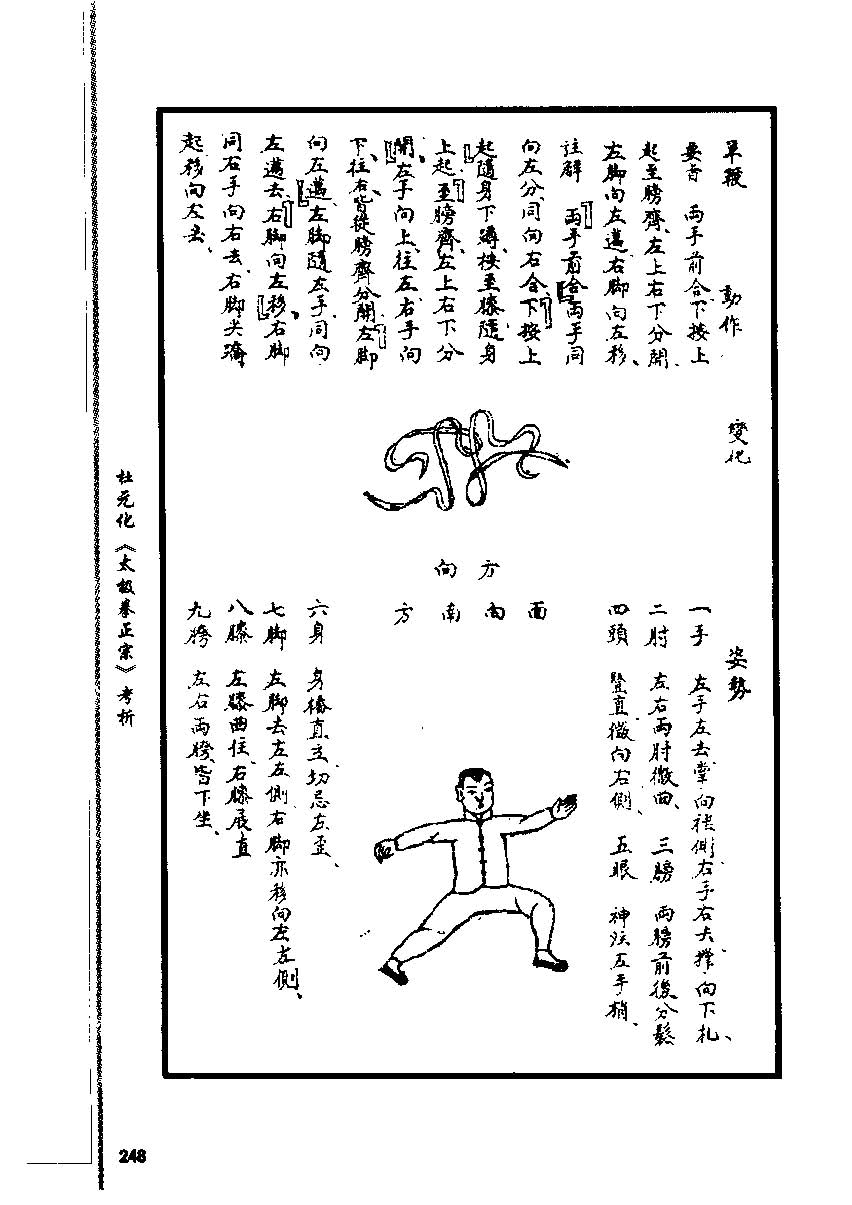 單鞭
動作
變化
姿勢
要言 兩手前合下按上
起至膀齊、左上右下分開、
左脚向左邁、右脚向左移、
註解 兩手前合兩手同
向左分、同向右合、下按上
起隨身下蹲、按至膝、隨身
上起、至膀齊、左上右下分
開、左手向上、往左、右手向
下、往右、皆從膀齊分開、左脚
向左邁、左脚隨左手、同向
左邁去、右脚向左移、右脚
同右手向右去、右脚尖
起、移向左去、
方向
面向南方
一手 左手左去、掌向後側、右手右去、撑向下扎、
二肘 左右兩肘微曲、 三膀 兩膀前後分鬆
四頭 豎直微向右側、 五眼 神注左手梢、
六身 身樁直立、切忌左歪、
七脚 左脚去左左側、右脚亦移向左左側、
八膝 左膝曲住、右膝展直
九胯 左右兩胯、皆下坐、
杜元化《太极拳正宗》考析
248